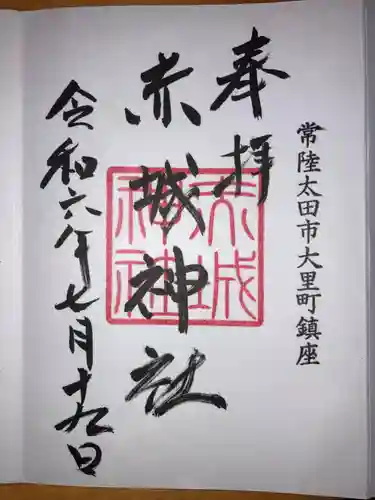 常陸太田市大里町鎮座
奉拝
赤城神社
令和六年七月十九日
赤城神社